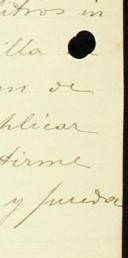 litros in
illa
on de
plicar
tirme
y pueda